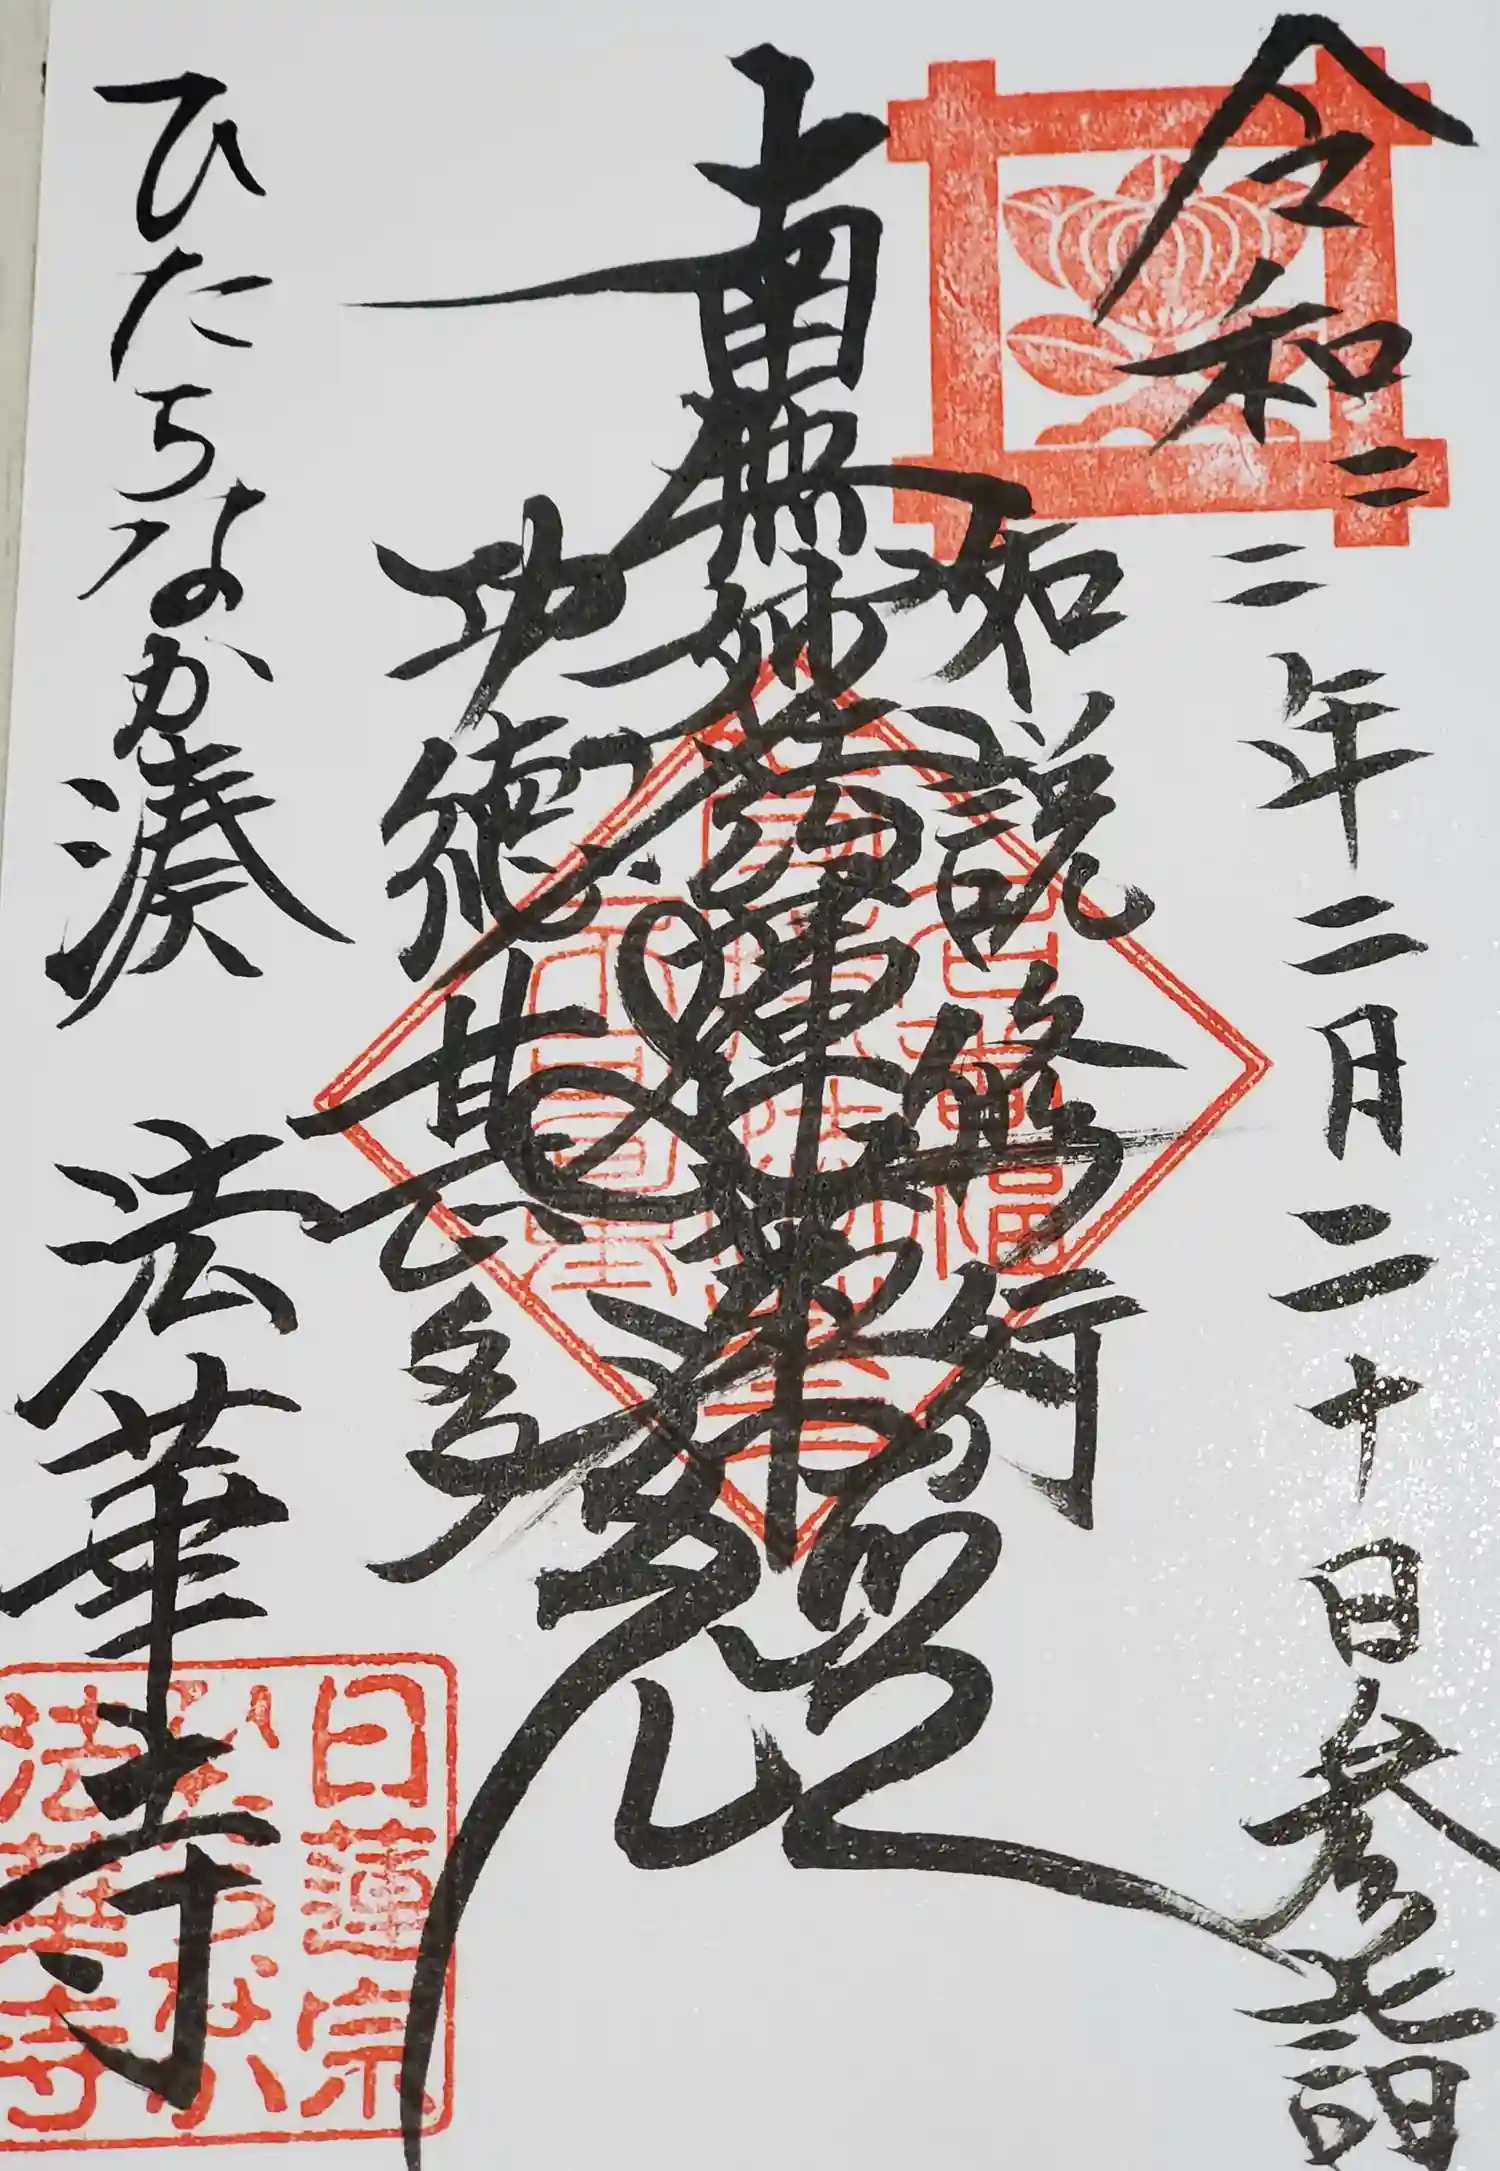 令和二二年二月二十日参詣
如説修行
南無妙法蓮華経
功徳甚多
ひたちなか湊 法華寺
日蓮宗
ひたちなか
法華寺